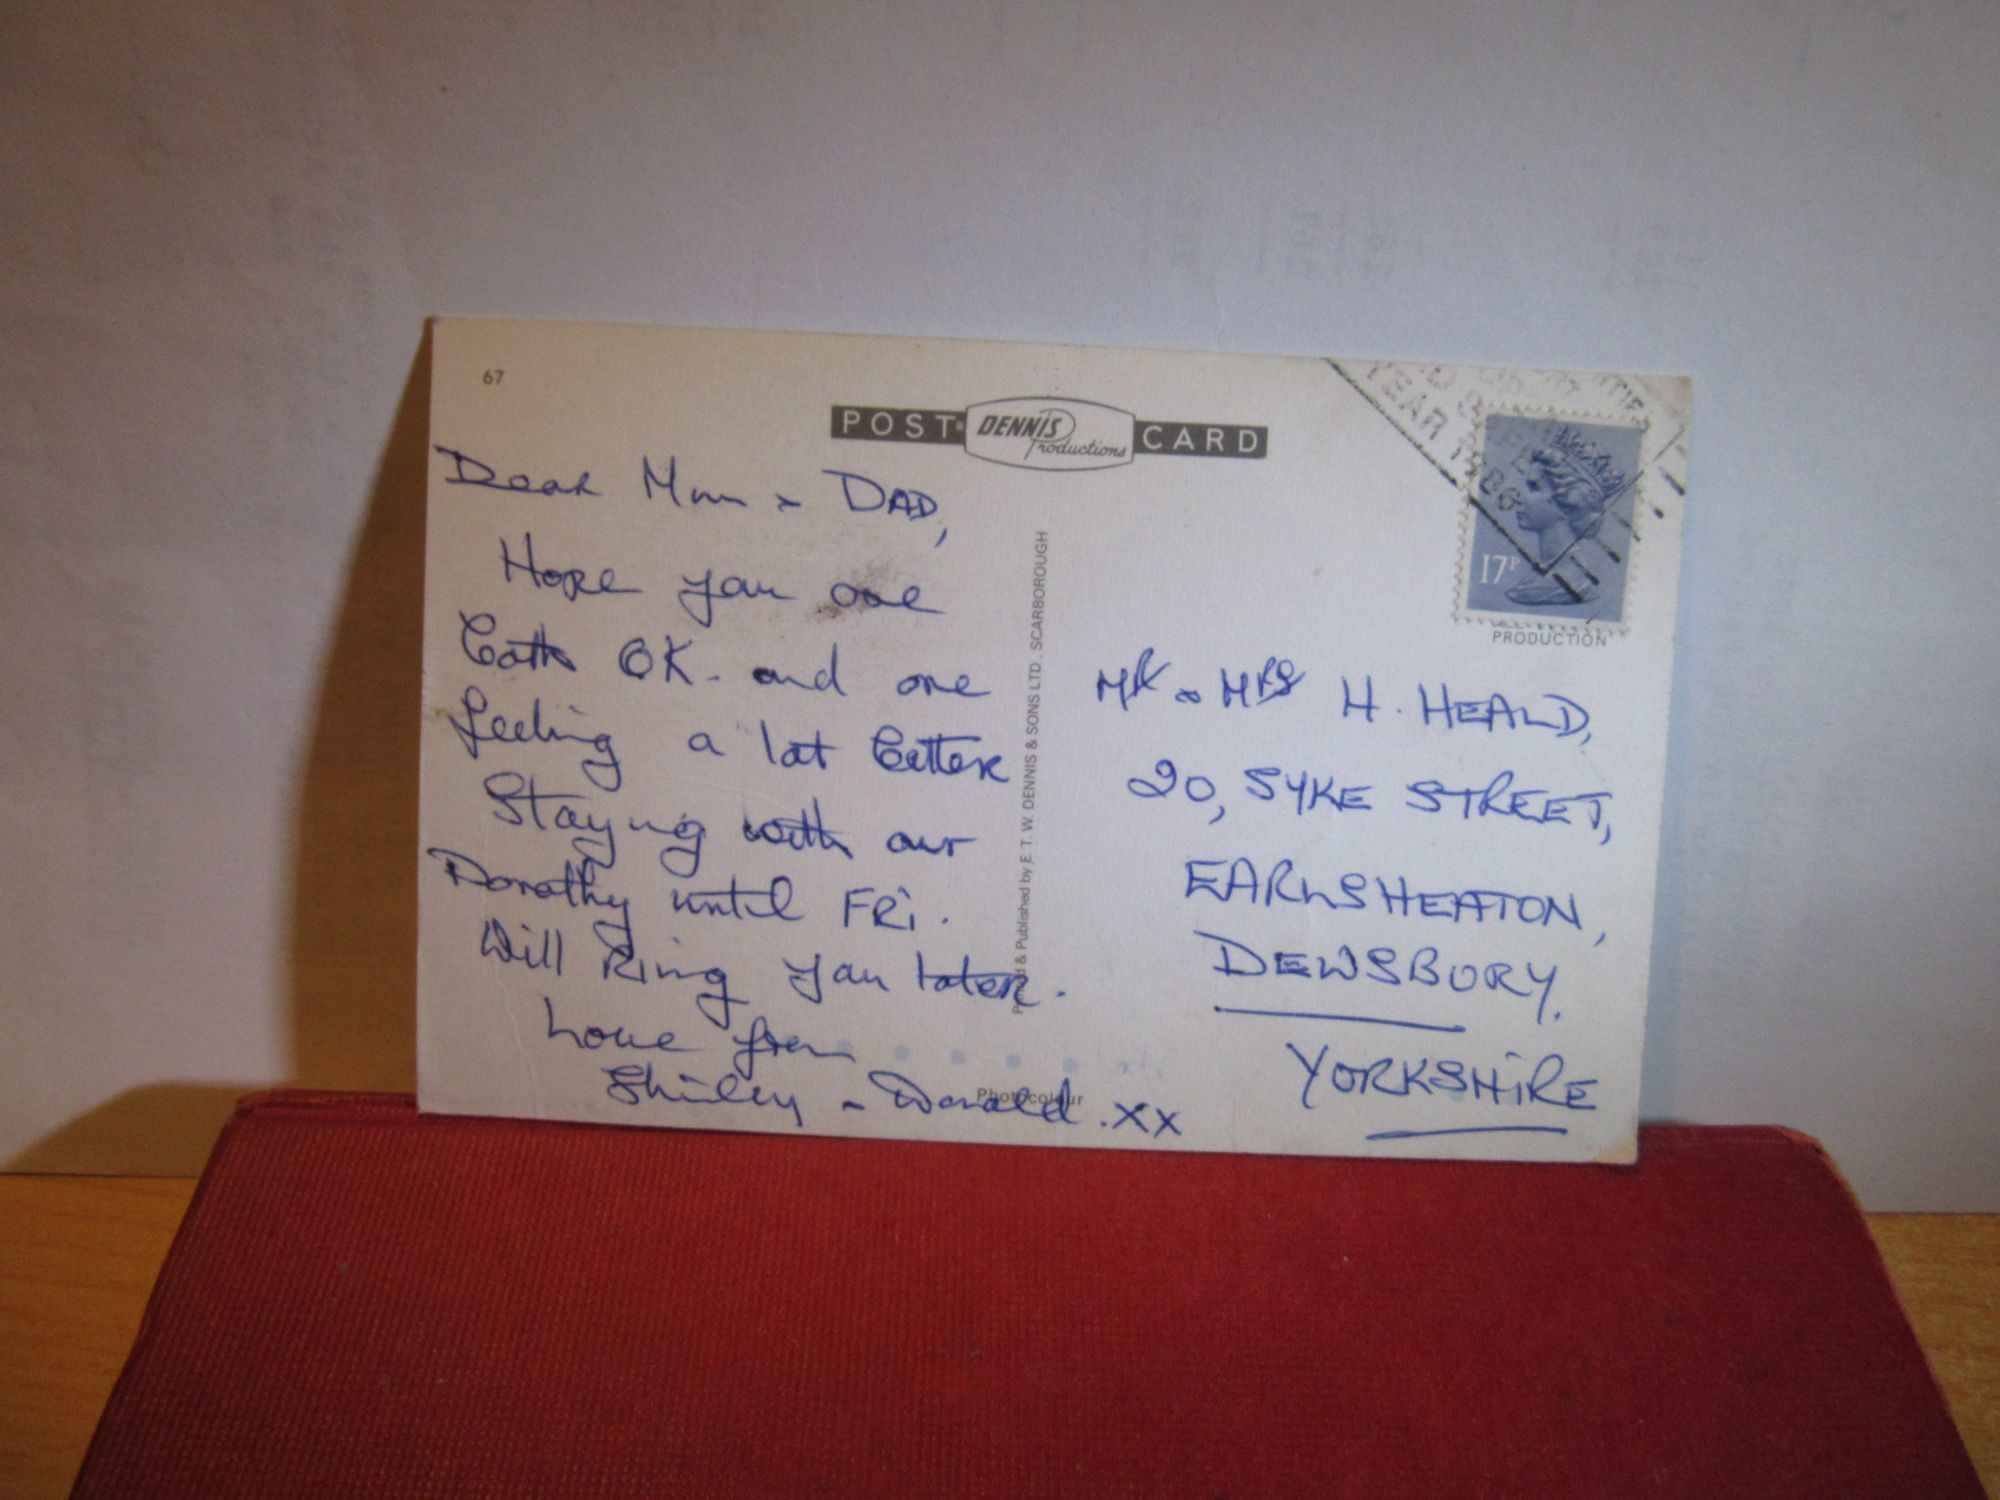 67
POST DENNIS Productions CARD
Dear Mum & DAD,
Hope you are
both OK. and are
feeling a lot better
Staying with our
Dorothy until FRi.
Will Ring you later.
Love from
Shirley & Donald .xx
Printed & Published by E. T. W. DENNIS & SONS LTD., SCARBOROUGH
Photocolour
YEAR 1986
17P
PRODUCTION
MR & MRS H. HEALD,
20, SYKE STREET,
EARLSHEATON,
DEWSBURY.
YORKSHiRE